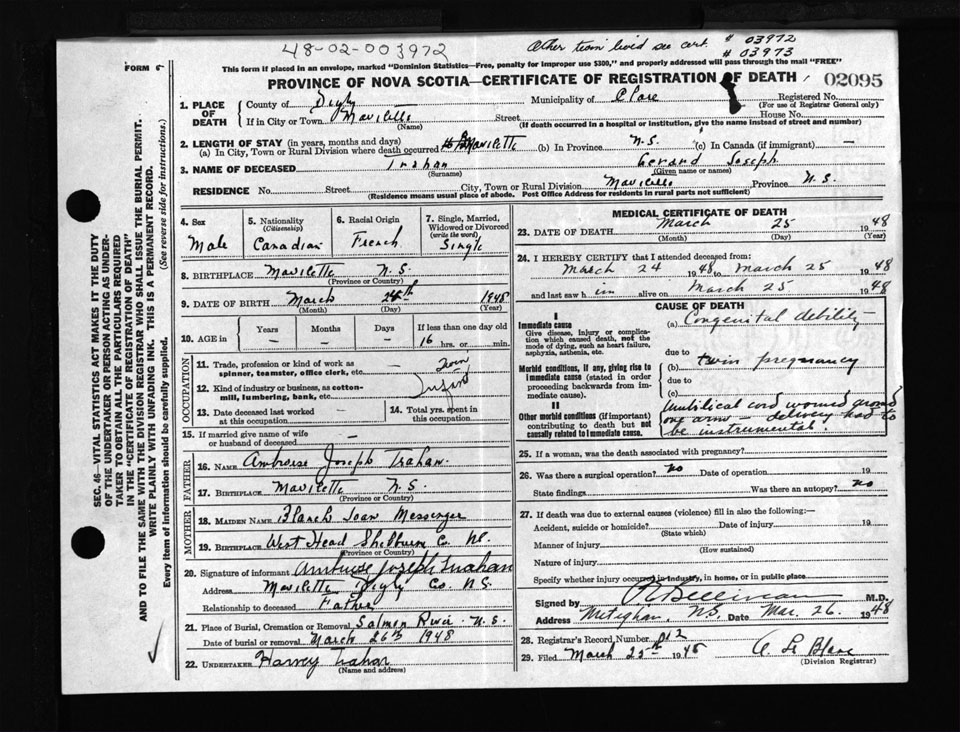 48-02-003972
Other twin lived see cert. # 03972
# 03973
FORM 6
This form if placed in an envelope, marked "Dominion Statistics—Free, penalty for improper use $300," and properly addressed will pass through the mail "FREE"
PROVINCE OF NOVA SCOTIA—CERTIFICATE OF REGISTRATION OF DEATH 02095
1. PLACE OF DEATH County of Digby Municipality of Clare Registered No.
(For use of Registrar General only)
If in City or Town Mavilette Street House No.
(Name) (If death occurred in a hospital or institution, give the name instead of street and number)
2. LENGTH OF STAY (in years, months and days)
(a) In City, Town or Rural Division where death occurred Mavilette (b) In Province N.S. (c) In Canada (if immigrant) —
3. NAME OF DECEASED Trahan Gerard Joseph
(Surname) (Given name or names)
RESIDENCE No. Street City, Town or Rural Division Mavilette Province N.S.
(Residence means usual place of abode. Post Office Address for residents in rural parts not sufficient)
4. Sex Male
5. Nationality (Citizenship) Canadian
6. Racial Origin French
7. Single, Married, Widowed or Divorced (write the word) Single
8. BIRTHPLACE Mavilette N.S.
(Province or Country)
9. DATE OF BIRTH March 24th 1948
(Month) (Day) (Year)
10. AGE in Years Months Days If less than one day old
— — — 16 hrs. or min.
OCCUPATION
11. Trade, profession or kind of work as spinner, teamster, office clerk, etc. —
12. Kind of industry or business, as cotton-mill, lumbering, bank, etc. Infant
13. Date deceased last worked at this occupation —
14. Total yrs. spent in this occupation
15. If married give name of wife or husband of deceased —
FATHER
16. NAME Ambroise Joseph Trahan
17. BIRTHPLACE Mavilette N.S.
(Province or Country)
MOTHER
18. MAIDEN NAME Blanch Joan Messenger
19. BIRTHPLACE West Head Shelburne Co. NS.
(Province or Country)
20. Signature of informant Ambroise Joseph Trahan
Address Mavilette Digby Co. N.S.
Relationship to deceased Father
21. Place of Burial, Cremation or Removal Salmon River N.S.
Date of burial or removal March 26th 1948
22. UNDERTAKER Harvey Trahan
(Name and address)
MEDICAL CERTIFICATE OF DEATH
23. DATE OF DEATH March 25 1948
(Month) (Day) (Year)
24. I HEREBY CERTIFY that I attended deceased from:
March 24 1948 to March 25 1948
and last saw h im alive on March 25 1948
CAUSE OF DEATH
I
Immediate cause
Give disease, injury or complication which caused death, not the mode of dying, such as heart failure, asphyxia, asthenia, etc.
(a) Congenital debility
due to
(b) twin pregnancy
Morbid conditions, if any, giving rise to immediate cause (stated in order proceeding backwards from immediate cause).
due to
(c)
II
Other morbid conditions (if important) contributing to death but not causally related to immediate cause.
Umbilical cord wound around
one arm — delivery had to
be instrumental.
25. If a woman, was the death associated with pregnancy?
26. Was there a surgical operation? no Date of operation 19
State findings Was there an autopsy? no
27. If death was due to external causes (violence) fill in also the following:—
Accident, suicide or homicide? Date of injury 19
(State which)
Manner of injury
(How sustained)
Nature of injury
Specify whether injury occurred in industry, in home, or in public place
Signed by M.D.
Address Meteghan, NS. Date Mar. 26 1948
28. Registrar's Record Number
29. Filed March 25th 1948 A. Le Blanc
(Division Registrar)
SEC. 46—VITAL STATISTICS ACT MAKES IT THE DUTY
OF THE UNDERTAKER OR PERSON ACTING AS UNDER-
TAKER TO OBTAIN ALL THE PARTICULARS REQUIRED
IN THE "CERTIFICATE OF REGISTRATION OF DEATH"
AND TO FILE THE SAME WITH THE DIVISION REGISTRAR WHO SHALL ISSUE THE BURIAL PERMIT.
WRITE PLAINLY WITH UNFADING INK. THIS IS A PERMANENT RECORD.
Every item of information should be carefully supplied. (See reverse side for instructions.)